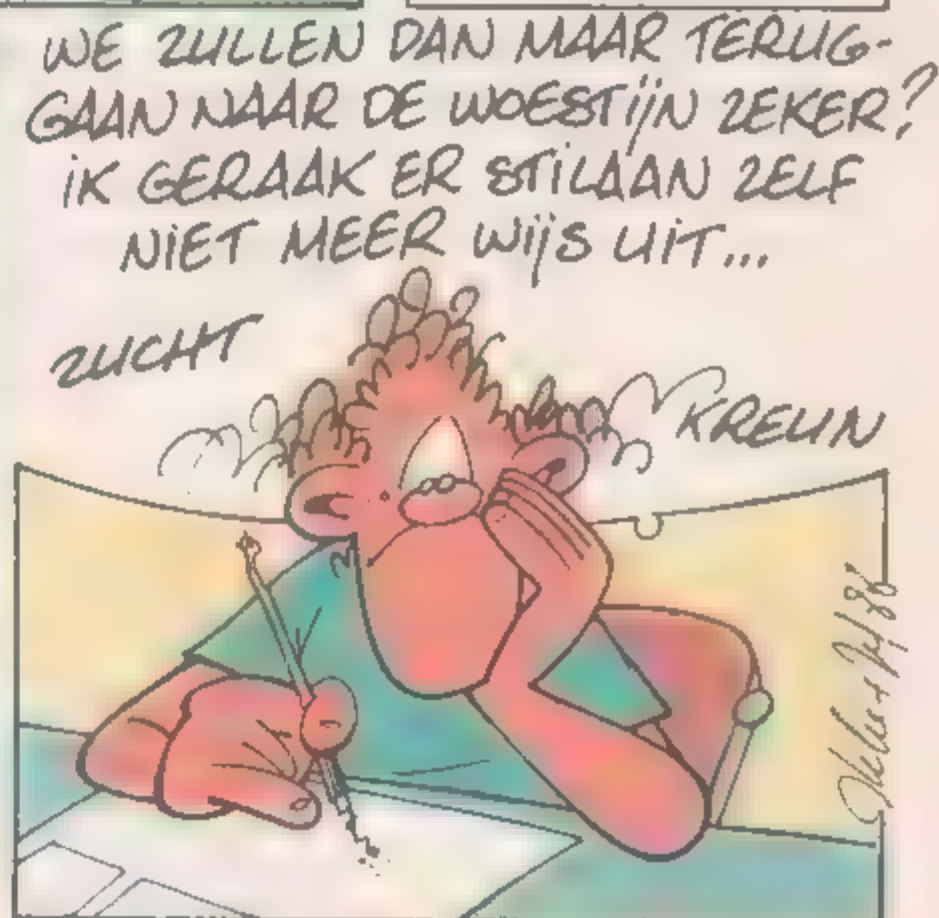 WE ZULLEN DAN MAAR TERUG-
GAAN NAAR DE WOESTIJN ZEKER?
IK GERAAK ER STILAAN ZELF
NIET MEER WIJS UIT...
ZUCHT
KREUN